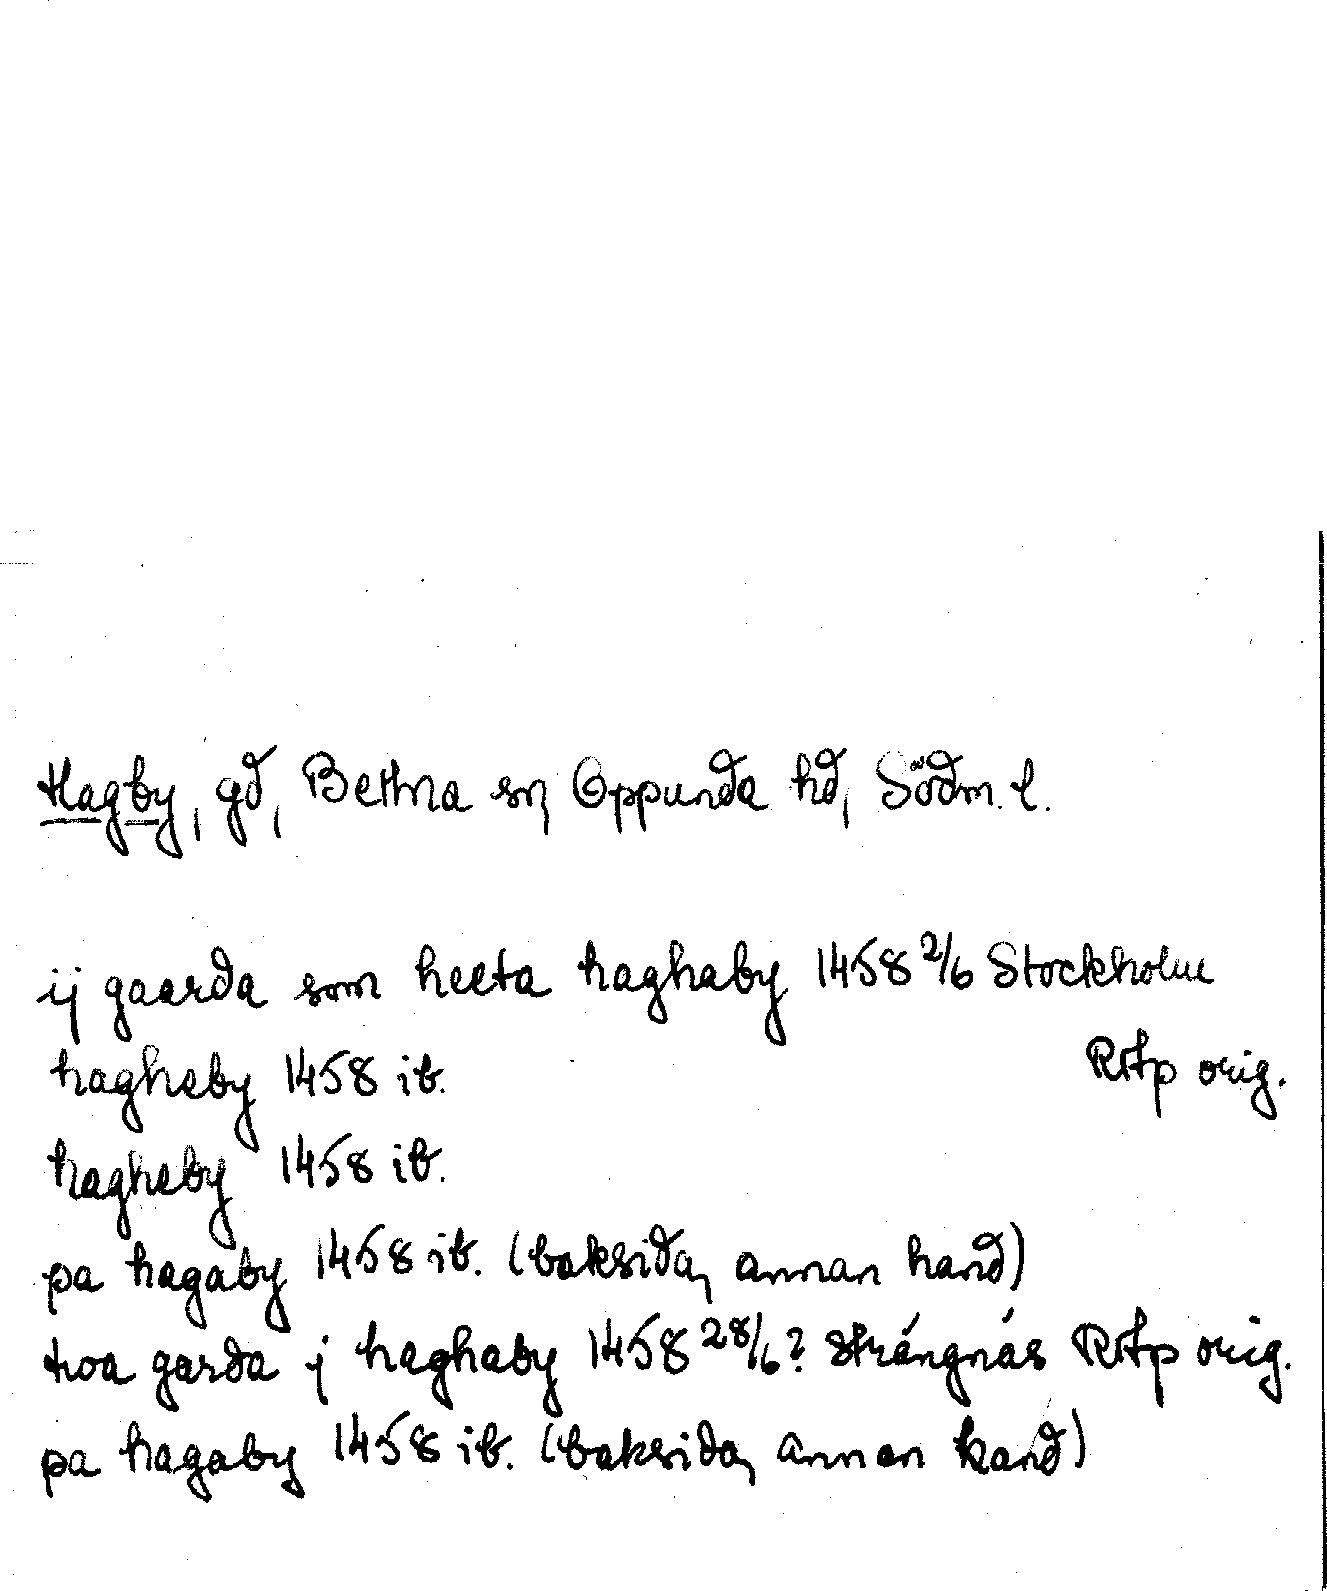 Hagby, gd, Bettna sn, Oppunda hd, Södm. l.
ij gaarda som heeta haghaby 1458 2/6 Stockholm
RAp orig.
hagheby 1458 ib.
hagheby 1458 ib.
pa hagaby 1458 ib. (baksida, annan hand)
twa garda j haghaby 1458 28/6? Strängnäs RAp orig.
pa hagaby 1458 ib. (baksida, annan hand)